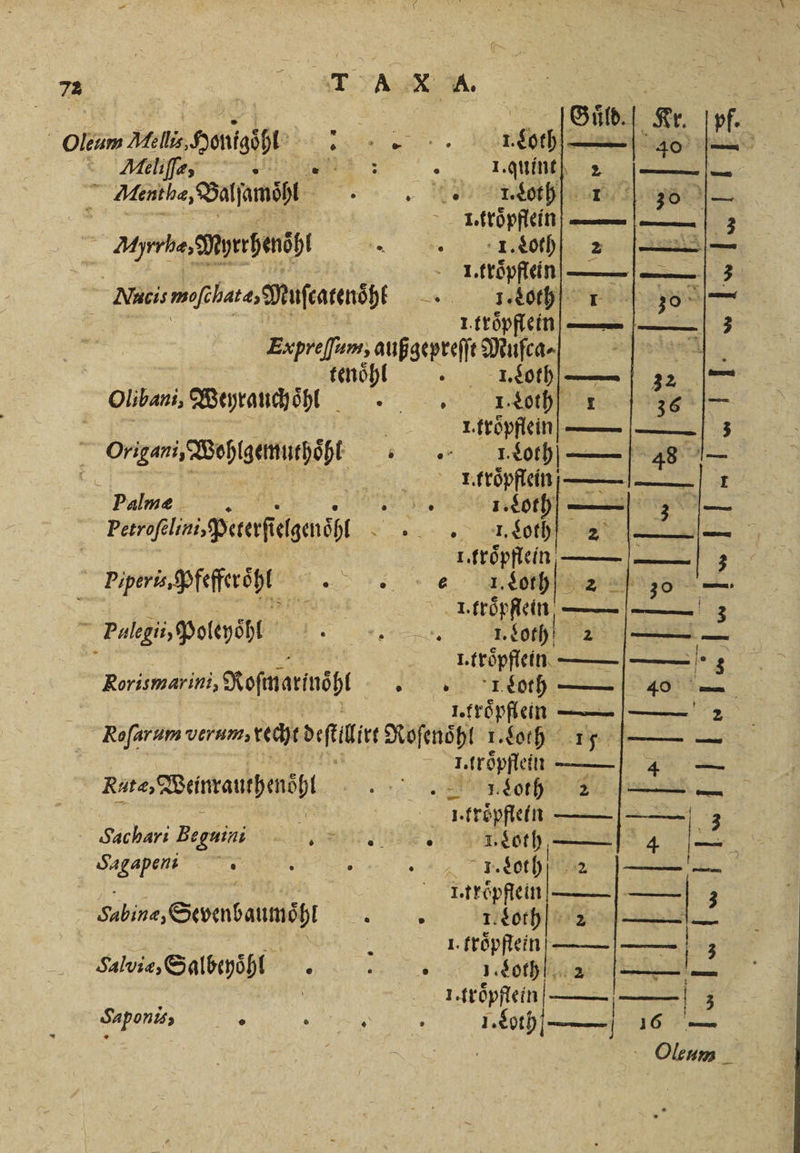 72 TAXA.
Gülb. Kr. pf.
Oleum Mellis, Hönigöhl : . . 1.Loth — 40 —
Melissæ, . . : . 1.quint 2 — —
Menthæ, Balsamöhl . . . 1.Loth 1 30 —
1.tröpflein — — 3
Myrrhæ, Myrrhenöhl . . 1.Loth 2 — —
1.tröpflein — — 3
Nucis moschatæ, Muscatenöhl . 1.Loth 1 30 —
1.tröpflein — — 3
Expressum, außgeprefft Musca-
tenöhl . 1.Loth — 32 —
Olibani, Weyrauchöhl . . 1.Loth 1 36 —
1.tröpflein — — 3
Origani, Wohlgemuthöhl . . 1.Loth — 48 —
1.tröpflein — — 1
Palmæ . . . . . 1.Loth — 3 —
Petroselini, Petersielgenöhl . . 1.Loth 2 — —
1.tröpflein — — 3
Piperis, Pfefferöhl . . e 1.Loth 2 30 —
1.tröpflein — — 3
Pulegii, Poleyöhl . . . 1.Loth 2 — —
1.tröpflein — — 3
Rorismarini, Rosmarinöhl . . 1 Loth — 40 —
1.tröpflein — — 2
Rosarum verum, recht destillirt Rosenöhl 1.Loth 15 — —
1.tröpflein — 4 —
Rutæ, Weinrauthenöhl . . 1.Loth 2 — —
1.tröpflein — — 3
Sachari Beguini . . . 1.Loth — 4 —
Sagapeni . . . . 1.Loth 2 — —
1.tröpflein — — 3
Sabinæ, Sevenbaumöhl . . 1.Loth 2 — —
1.tröpflein — — 3
Salviæ, Salbeyöhl . . . 1.Loth 2 — —
1.tröpflein — — 3
Saponis, . . . . 1.Loth — 16 —
Oleum